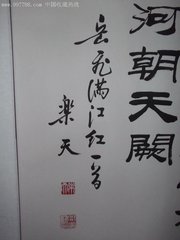 www.997788.com 中国收藏热线
河朝天阙
岳飞满江红一首
樂天